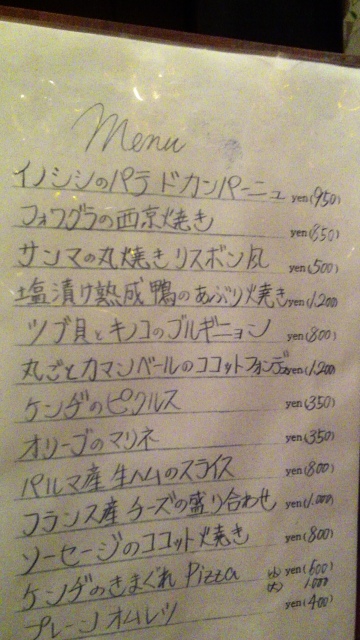 Menu
イノシシのパテ ドカンパーニュ yen(950)
フォワグラの西京焼き yen(850)
サンマの丸焼き リスボン風 yen(500)
塩漬け熟成鴨のあぶり焼き yen(1,200)
ツブ貝とキノコのブルギニョン yen(800)
丸ごとカマンベールのココットフォンデュ yen(1,200)
ケンヂのピクルス yen(350)
オリーブのマリネ yen(350)
パルマ産 生ハムのスライス yen(800)
フランス産 チーズの盛り合わせ yen(1,000)
ソーセージのココット焼き yen(800)
ケンヂのきまぐれ Pizza (小) yen(500)
(大) 1,000
プレーンオムレツ yen(400)